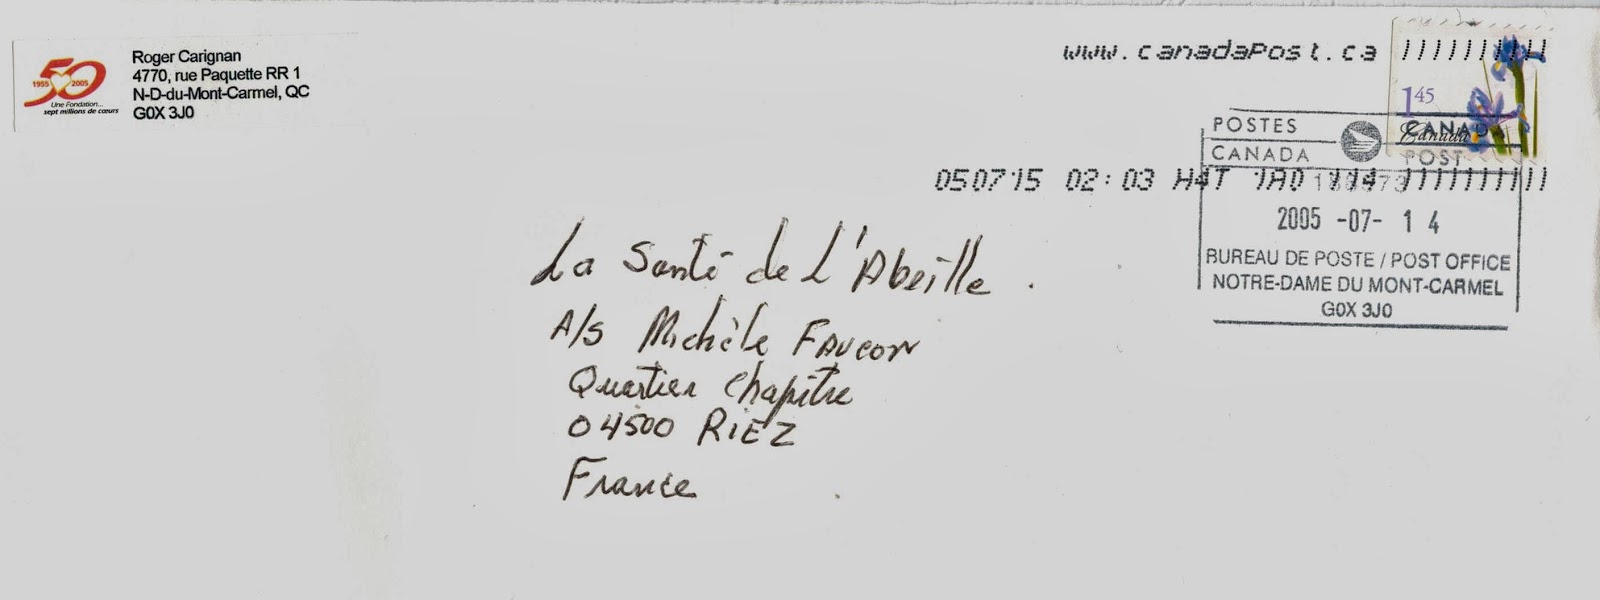 1955 50 2005
Une Fondation...
sept millions de cœurs
Roger Carignan
4770, rue Paquette RR 1
N-D-du-Mont-Carmel, QC
G0X 3J0
www.canadaPost.ca
1 45
Canada
POSTES CANADA
CANADA POST
050715 02:03 H4T 1A0
2005 -07- 14
BUREAU DE POSTE / POST OFFICE
NOTRE-DAME DU MONT-CARMEL
G0X 3J0
La Santé de L'Abeille
A/S Michèle FAUCON
Quartier Chapitre
04500 RIEZ
France